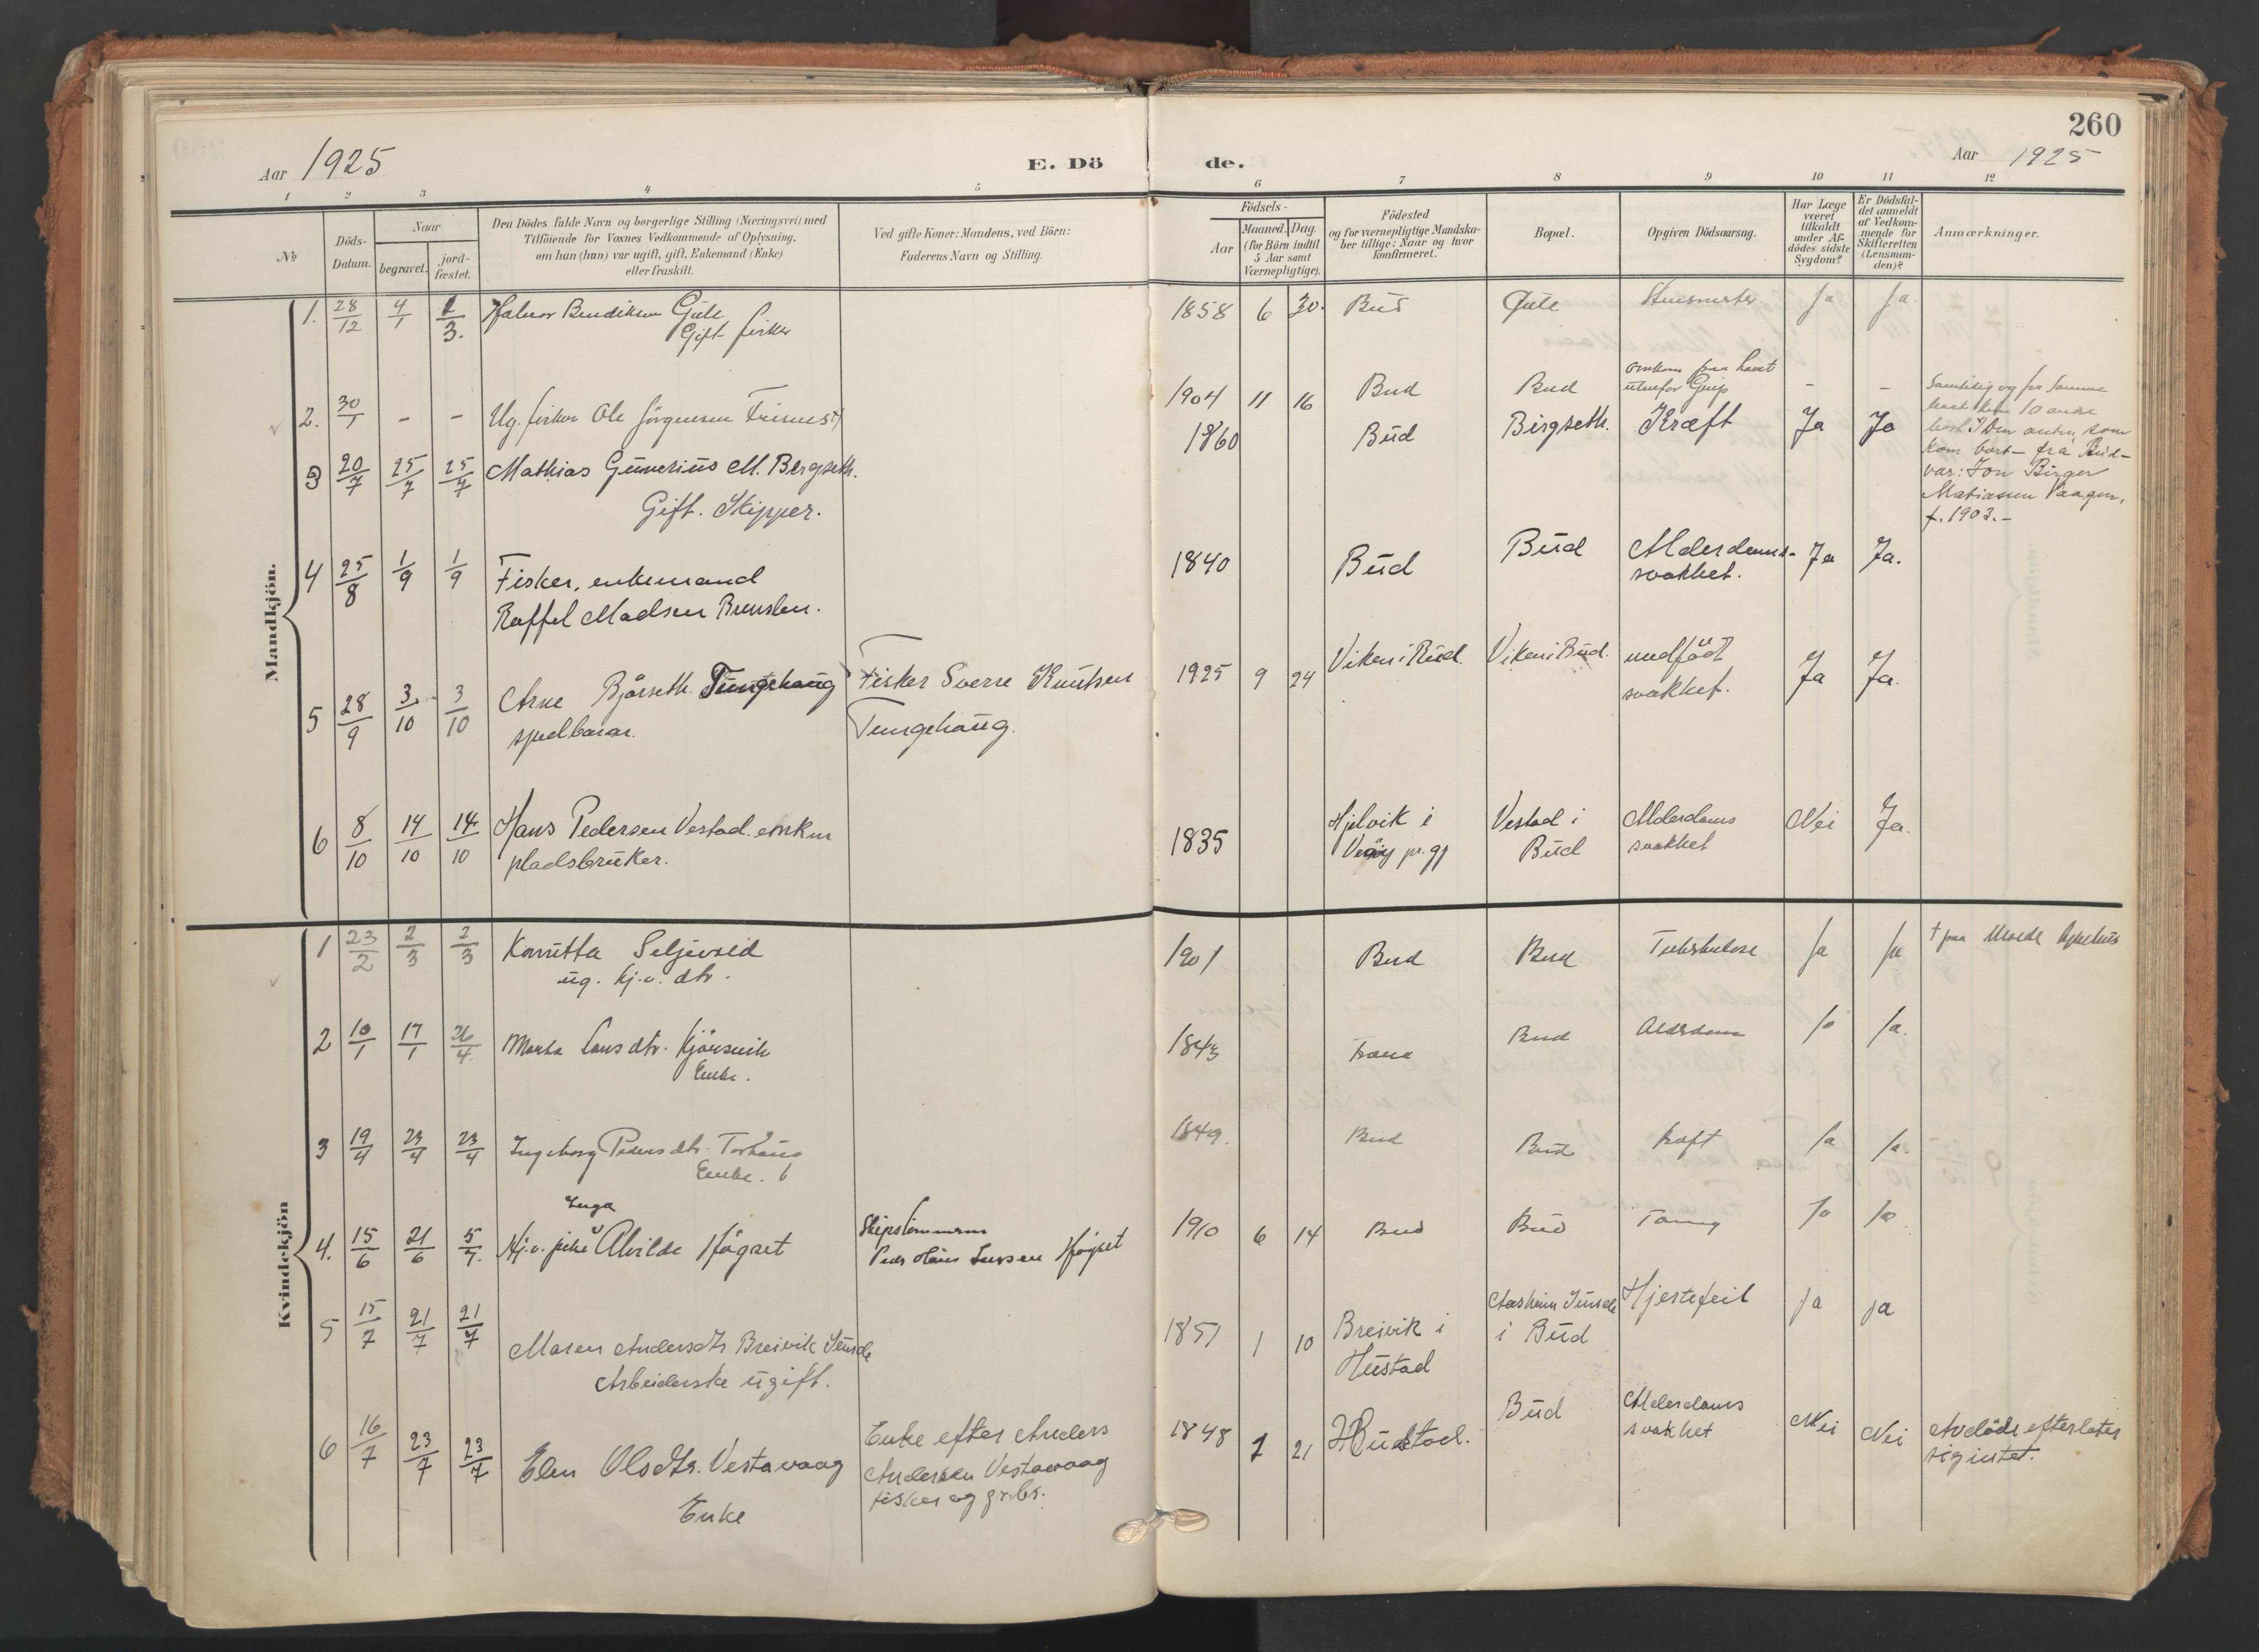 260
Aar 1925
E. Dö
de.
Aar 1925
1 2 3 4 5 6 7 8 9 10 11 12
No
Döds-
Datum.
Naar
begravet.
jord-
fæstet.
Den Dödes fulde Navn og borgerlige Stilling (Næringsvei) med
Tilföiende for Voxnes Vedkommende af Oplysning,
om han (hun) var ugift, gift, Enkemand (Enke)
eller fraskilt.
Ved gifte Koner: Mandens, ved Börn:
Faderens Navn og Stilling.
Födsels-
Aar
Maaned. Dag.
(for Börn indtil
5 Aar samt
Værnepligtige).
Födested
og for værnepligtige Mandska-
ber tillige: Naar og hvor
konfirmeret.
Bopæl.
Opgiven Dödsaarsag.
Har Læge
været
tilkaldt
under Af-
dödes sidste
Sygdom?
Er Dödsfal-
det anmeldt
af Vedkom-
mende for
Skifteretten
(Lensman-
den)?
Anmærkninger.
Mandkjön.
1. 28/12 4/1 1/3. Halvor Bendiksen Gule 1858 6 30. Bud Gule Ja Ja
Gift fisker
2. 30/1 - - Ug. fisker Ole Jörgensen 1904 11 16 Bud Bud omkom paa havet
utenfor Grip - -
Samtidig og fra samme
10 andre
Den anden som
kom bort fra Bud
var: Jon Birger
Matiasen Vaagen,
f. 1903.-
3 20/7 25/7 25/7 Mathias Gunerius M. Bergseth. 1860 Bud Bergseth. Kræft Ja Ja
Gift. Skipper.
4 25/8 1/9 1/9 Fisker, enkemand 1840 Bud Bud Alderdoms-
svakhet. Ja Ja.
Raffel Madsen
5 28/9 3/10 3/10 Arne Bjørseth Tungehaug Fisker Sverre Knutsen 1925 9 24 Viken i Bud. Viken i Bud. medfödt
svakhet. Ja Ja.
spedbarn. Tungehaug.
6 8/10 14/10 14/10 Hans Pedersen Vestad. enkm 1835 Hjelvik i
Veøy pr.gj Vestad i
Bud Alderdoms
svakhet Nei Ja.
pladsbruker.
Kvindekjön
1 23/2 2/3 2/3 Seljevold 1901 Bud Bud Tuberkulose Ja Ja † paa Molde sykehus
ug. kj.v. dtr.
2 10/1 17/1 26/4. Marta Larsdtr. 1843 Bud Alderdom Ja Ja.
Enke.
3 19/4 23/4 23/4 Ingeborg Pedersdtr. Torhaug 1849. Bud Bud kræft Ja Ja.
Enke.
Inga
4. 15/6 21/6 5/7. Kj.v. pike Alvilde Högset 1910 6 14 Bud Bud Ja Ja
Skipstömmerm
Peder Hans Larsen Högset
5 15/7 21/7 21/7 Maren Andersdtr Breivik 1851 1 10 Breivik i
Hustad
i Bud Hjertefeil ja ja
Arbeiderske ugift.
6 16/7 23/7 23/7 Elen Olsdtr. Vestavaag Enke efter Anders
Andersen Vestavaag
fisker og gr.br. 1848 21 Hustad. Bud Alderdoms
svakhet Nei Nei Avdöde efterlater
sig intet.
Enke